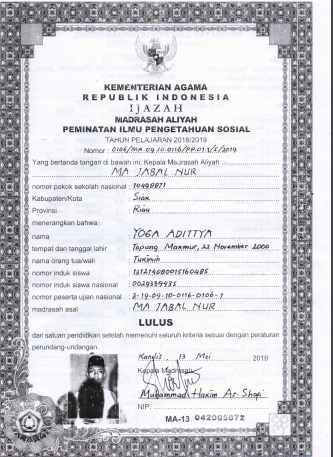 KEMENTERIAN AGAMA
REPUBLIK INDONESIA
IJAZAH
MADRASAH ALIYAH
PEMINATAN ILMU PENGETAHUAN SOSIAL
TAHUN PELAJARAN 2018/2019
Nomor :
Yang bertanda tangan di bawah ini, Kepala Madrasah Aliyah
MA JABAL NUR
nomor pokok sekolah nasional : 10498871
Kabupaten/Kota : Siak
Provinsi : Riau
menerangkan bahwa:
nama : YOGA ADITTYA
tempat dan tanggal lahir : Tapung Makmur, 22 November 2000
nama orang tua/wali : Tukimin
nomor induk siswa : 131214080015160485
nomor induk siswa nasional : 0029339435
nomor peserta ujian nasional : 3-19-09-10-0116-0106-7
madrasah asal : MA JABAL NUR
LULUS
dari satuan pendidikan setelah memenuhi seluruh kriteria sesuai dengan peraturan
perundang-undangan.
Kandis, 13 Mei 2019
Kepala Madrasah
Muhammad Hakim As-Shofi
NIP.
MA-13 042005072